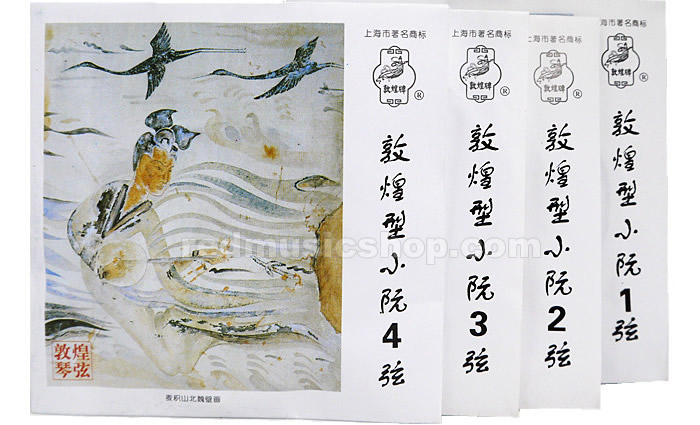 上海市著名商标
敦煌牌
®
敦煌型小阮4弦
上海市著名商标
敦煌牌
®
敦煌型小阮3弦
上海市著名商标
敦煌牌
®
敦煌型小阮2弦
上海市著名商标
敦煌牌
®
敦煌型小阮1弦
敦煌
琴弦
麦积山北魏壁画
redmusicshop.com